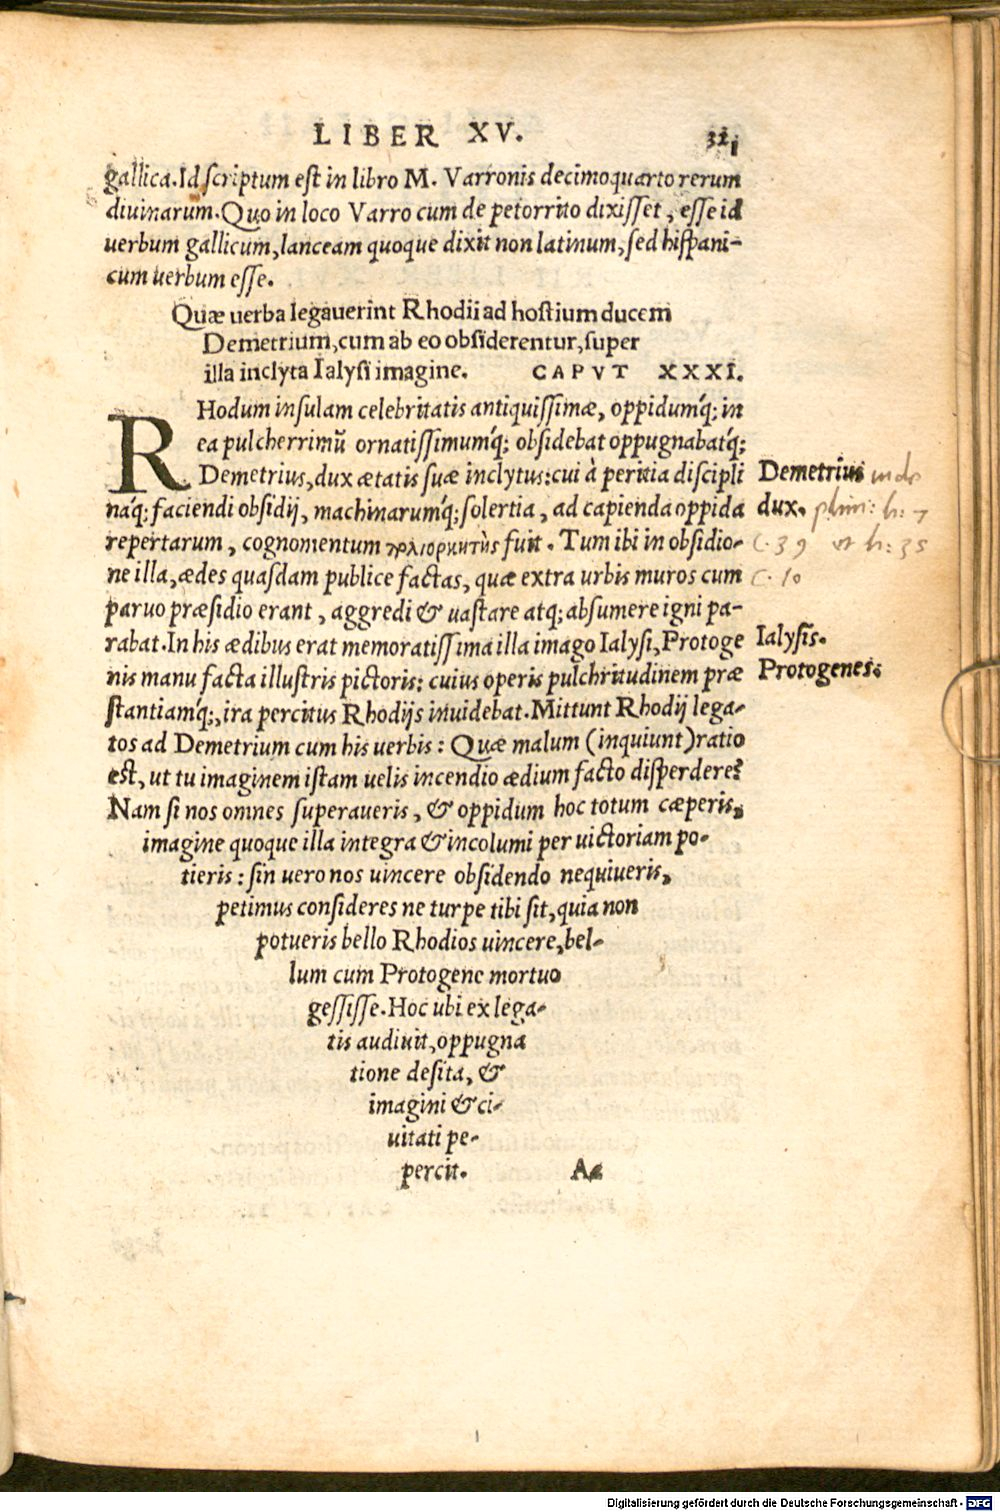 LIBER XV.
gallica. Id scriptum est in libro M. Varronis decimoquarto rerum
diuinarum. Quo in loco Varro cum de petorrito dixisset, esse id
uerbum gallicum, lanceam quoque dixit non latinum, sed hispani-
cum uerbum esse.
Quæ uerba legauerint Rhodii ad hostium ducem
Demetrium, cum ab eo obsiderentur, super
illa inclyta Ialysi imagine. CAPVT XXXI.
RHodum insulam celebritatis antiquissimæ, oppidumq́; in
ea pulcherrimũ ornatissimumq́; obsidebat oppugnabatq́;
Demetrius, dux ætatis suæ inclytus: cui à peritia discipli
náq́; faciendi obsidij, machinarumq́; solertia, ad capienda oppida
repertarum, cognomentum fuit. Tum ibi in obsidio-
ne illa, ædes quasdam publice factas, quæ extra urbis muros cum
paruo præsidio erant, aggredi & uastare atq; absumere igni pa-
rabat. In his ædibus erat memoratissima illa imago Ialysi, Protoge
nis manu facta illustris pictoris: cuius operis pulchritudinem præ
stantiamq́;, ira percitus Rhodijs inuidebat. Mittunt Rhodij lega-
tos ad Demetrium cum his uerbis: Quæ malum (inquiunt) ratio
est, ut tu imaginem istam uelis incendio ædium facto disperdere?
Nam si nos omnes superaueris, & oppidum hoc totum cæperis,
imagine quoque illa integra & incolumi per uictoriam po-
tieris: sin uero nos uincere obsidendo nequiueris,
petimus consideres ne turpe tibi sit, quia non
potueris bello Rhodios uincere, bel-
lum cum Protogene mortuo
gessisse. Hoc ubi ex lega-
tis audiuit, oppugna
tione desita, &
imagini & ci-
uitati pe-
percit. A-
Demetrius
dux. plin: h: 7
C. 39 et h: 35
C. 10
Ialysis.
Protogenes.
Digitalisierung gefördert durch die Deutsche Forschungsgemeinschaft - DFG